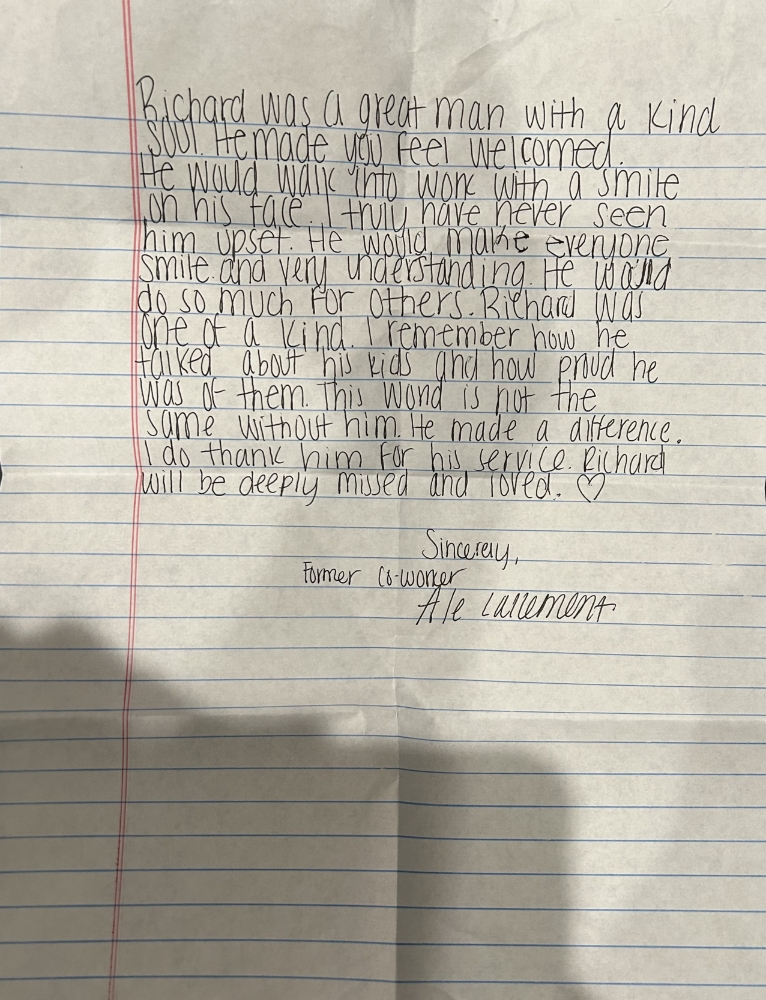 Richard was a great man with a kind
soul. He made you feel welcomed.
He would walk into work with a smile
on his face. I truly have never seen
him upset. He would make everyone
smile and very understanding. He would
do so much for others. Richard was
one of a kind. I remember how he
talked about his kids and how proud he
was of them. This world is not the
same without him. He made a difference.
I do thank him for his service. Richard
will be deeply missed and loved. ♡
Sincerely,
Former Co-worker
Ale Lallement